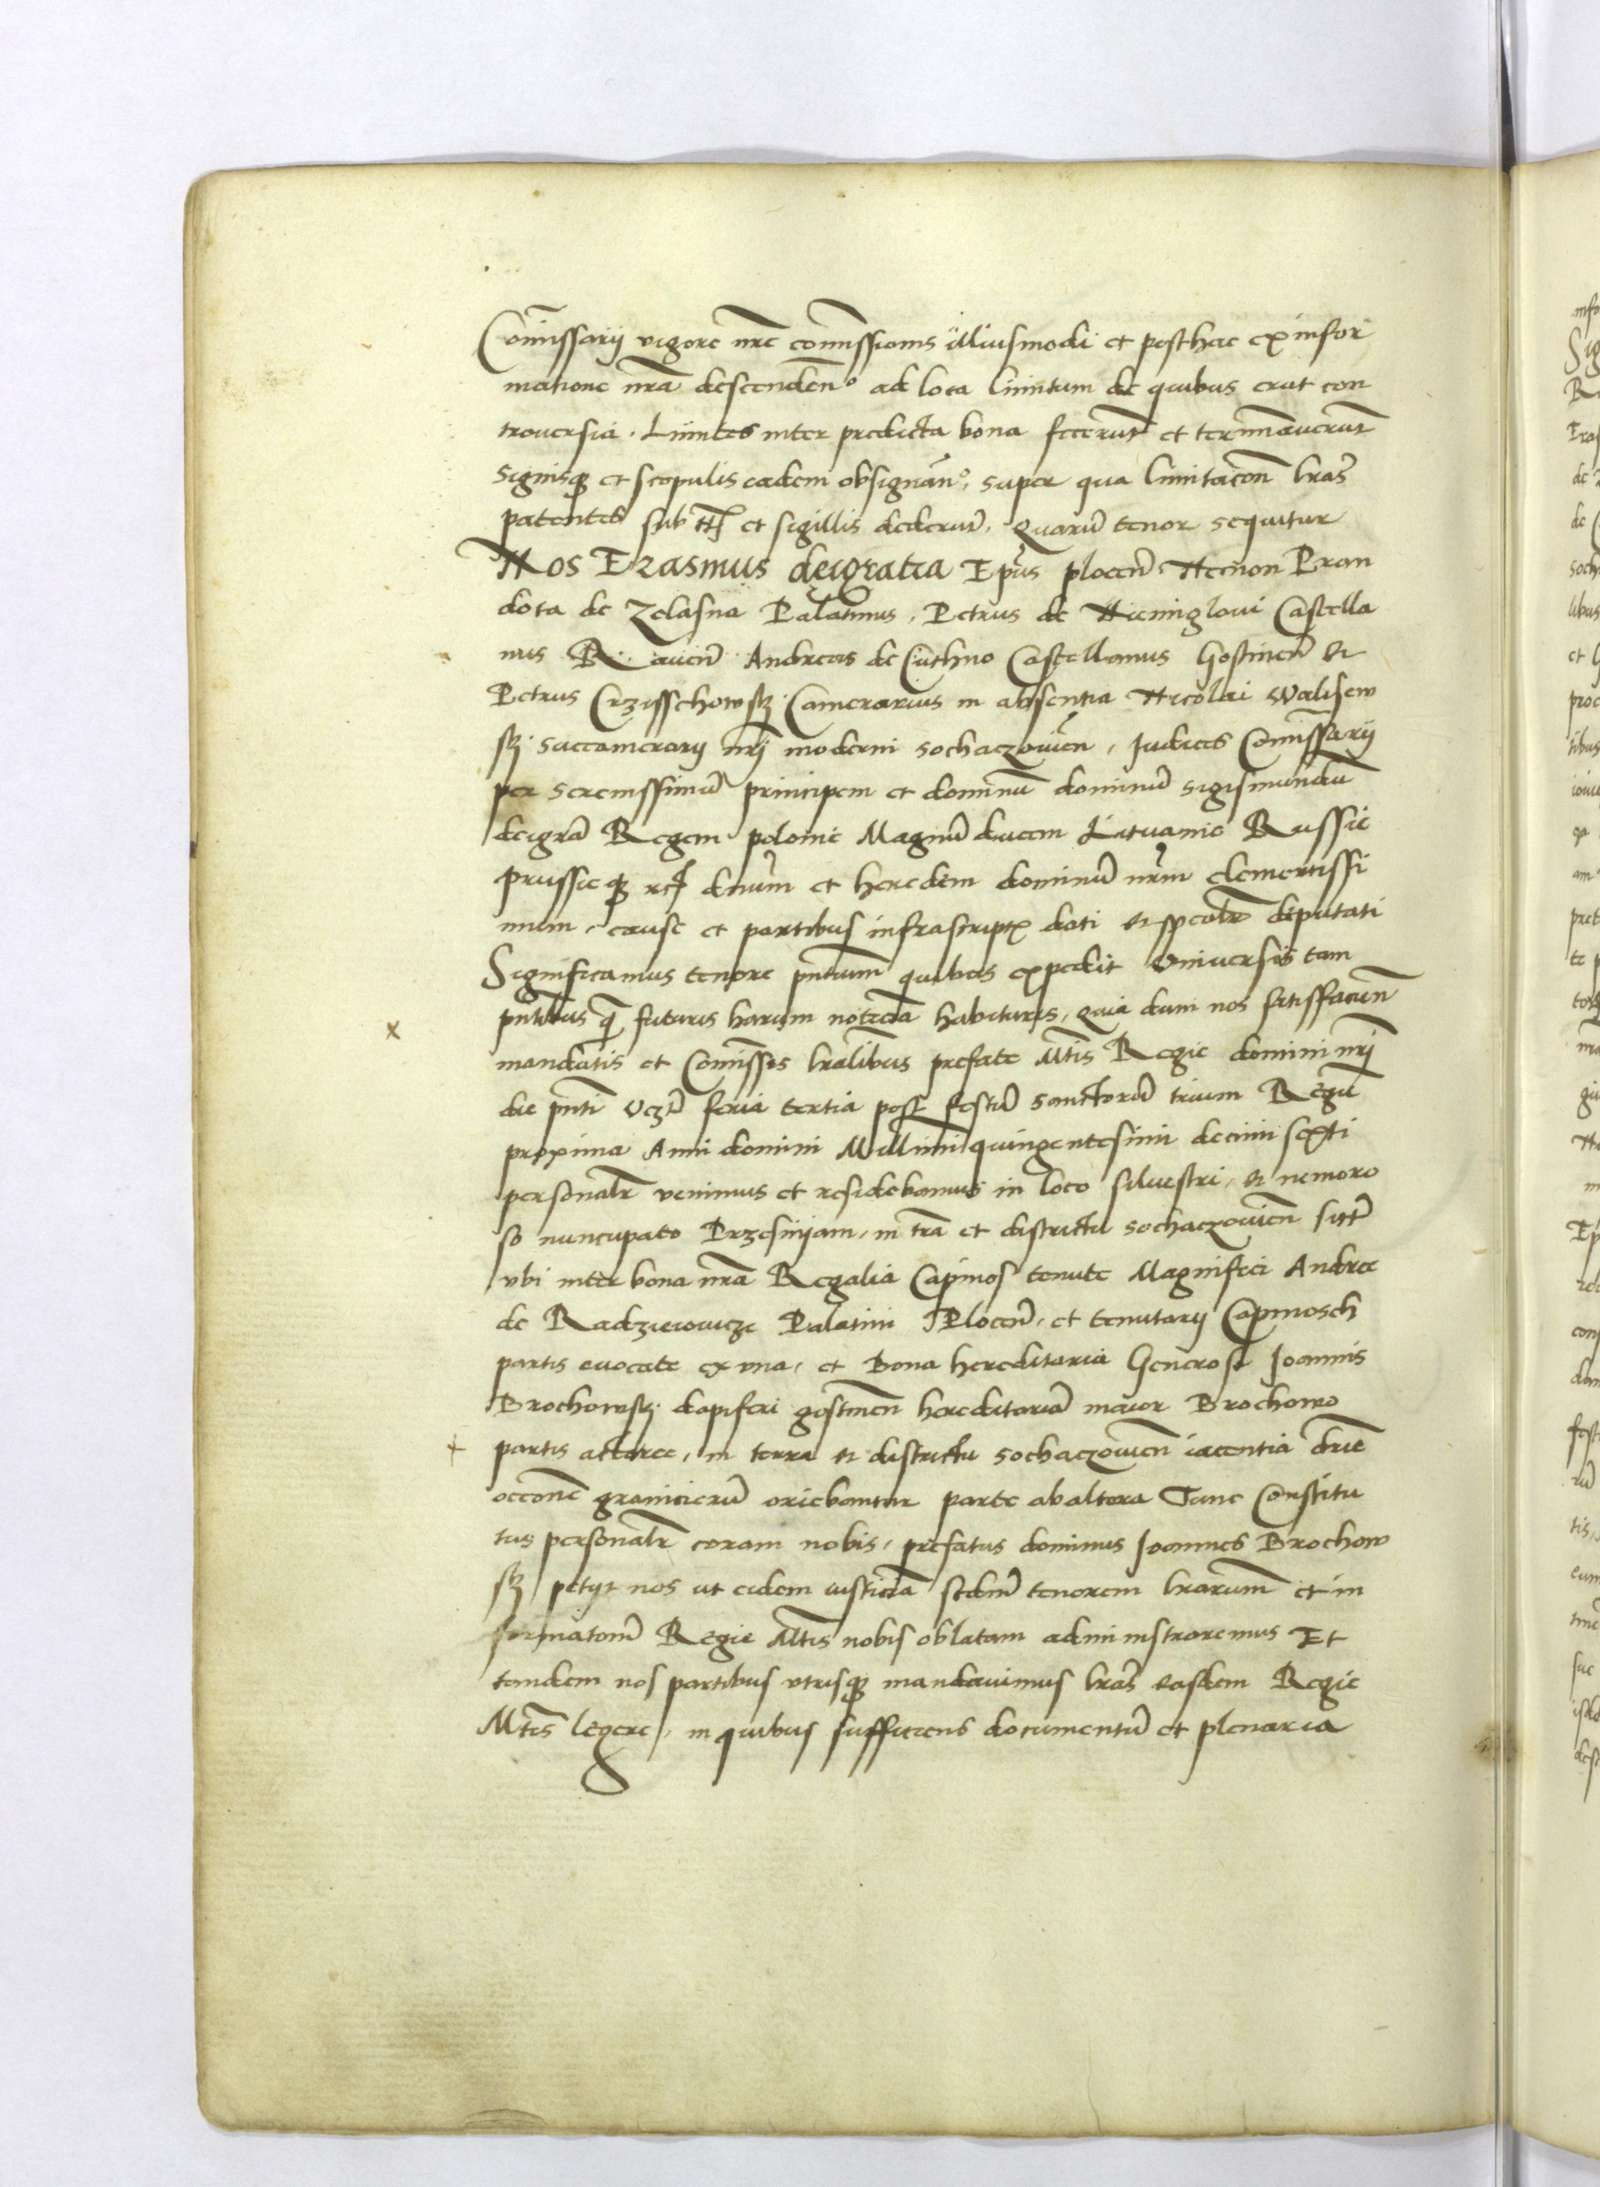 Com̄issarij vigore nr̄e com̄issionis illiusmodi et posthac ex infor
matione nr̄a descenden̄ ad loca limitum de quibus erat con
trouersia. Limites inter predicta bona fecerūt et terminaverūt
signisq et scopulis eadem obsignan̄, super qua limitacōn lr̄as
patentes sub et sigillis dederūt. quarū tenor sequitur
Nos Erasmus dei gratia Ep̄us plocen̄ Pran
dota de Zelasna Palatinus, Petrus de Castella
nus Raven̄ Andreas de Cuthno Castellanus Gostinen̄ et
Petrus Crzisschowsky Camerarius in absentia Nicolai Walisew
sky succamerarij nr̄j moderni sochaczovien̄, Iudices Com̄issarij
per serenissimū principem et dominū dominū sigismundū
dei gr̄a Regem polonie Magnū ducem Lituanie Russie
prussieq etc̄ dn̄um et heredem dominū nr̄m clementissi
mum, cause et partibus infrascript dati et deputati
Significamus tenore pn̄tium quibus expedit Vniuersis tam
pn̄tibus q̄ futuris harum noticiā habituris, quia dum nos satisfacien̄
mandatis et Com̄iss lr̄alibus prefate Mt̄is Regie domini nr̄j
die pn̄ti vcz feria tertia post festū sanctorū trium Regū
proxima Anni domini Millimi quingentesimi decimi sexti
personalr̄ venimus et residebamus in loco siluestri, et nemoro
so nuncupato Przesnijam, in tr̄a et districtu sochaczovien̄ sitt
vbi inter bona nr̄a Regalia Capinos tenute Magnifici Andree
de Radzieiovicze Palatini Plocen̄, et tenutarij Capinosch
partis euocate ex vna, et Bona hereditaria Generosi Ioannis
Brochowsky dapiferi gostinen̄ hereditariā maior Brochowo
partis actoree, in terra et districtu sochaczovien̄ iacentia
occōne granicierū oriebantur parte ab altera Tunc Constitu
tus personalr̄ coram nobis, prefatus dominus Ioannes Brochow
sky petijt nos ut eidem iusticiā scdm̄ tenorem lr̄arum et in
formatonē Regie Mt̄is nobis oblatam administraremus Et
tandem nos partibus vtrisq mandavimus lr̄as easdem Regie
Mt̄is legere, in quibus sufficiens documentū et plenaria